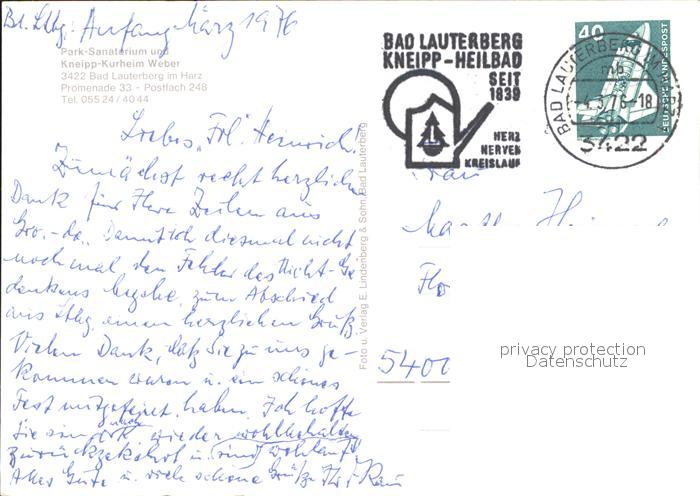 Bd. Ltbg. Anfang März 1976
Park-Sanatorium und
Kneipp-Kurheim Weber
3422 Bad Lauterberg im Harz
Promenade 33 - Postfach 248
Tel. 0 55 24 / 40 44
Liebes "Frl." Heinrich.
Zunächst recht herzlichen
Dank für Ihre Zeilen aus
Damit ich diesmal nicht
noch mal den Fehler des Nicht-Ge
denkens begehe, zum Abschied
aus Ltbg. einen herzlichen Gruß.
Vielen Dank, daß Sie zu uns ge-
kommen waren u. ein schönes
Fest mitgefeiert haben. Ich hoffe
Sie sind auch wieder wohlbehalten
zurückgekehrt u. sind wohlauf.
Alles Gute u. viele schöne Grüße Ihr
Foto u. Verlag E. Lindenberg & Sohn, Bad Lauterberg
BAD LAUTERBERG
KNEIPP-HEILBAD
SEIT
1839
HERZ
NERVEN
KREISLAUF
40
DEUTSCHE BUNDESPOST
BAD LAUTERBERG
mb
-4.3.76-18
3422
Frau
5400
privacy protection
Datenschutz